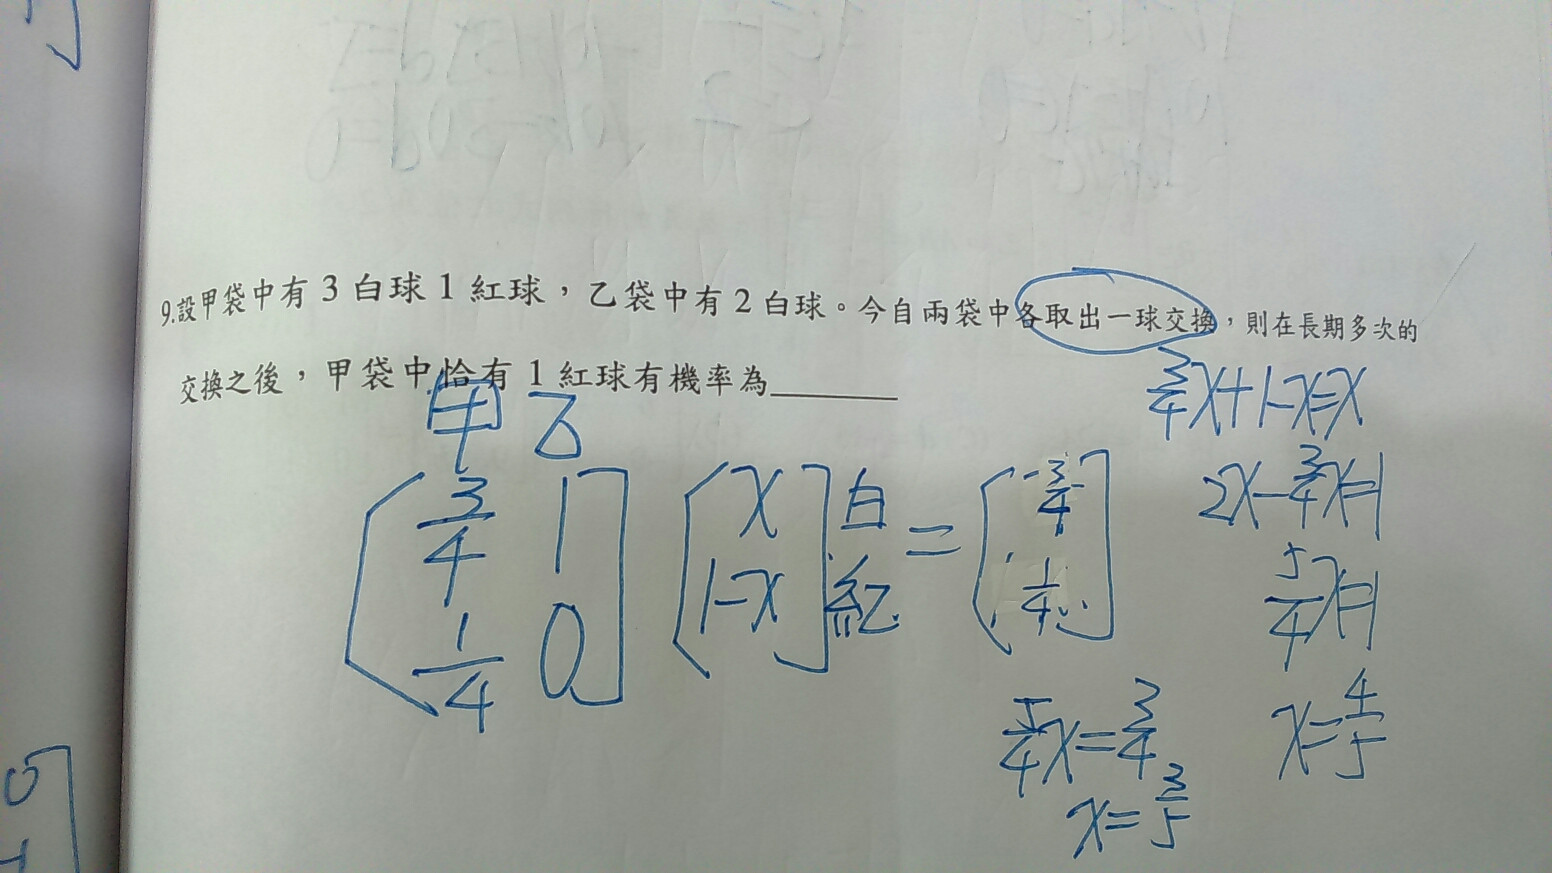 9.設甲袋中有3白球1紅球，乙袋中有2白球。今自兩袋中各取出一球交換，則在長期多次的
交換之後，甲袋中恰有1紅球有機率為
甲 乙
3/4 1
1/4 0
x 白
1-x 紅
=
3/4
1/4
3/4x+1-x=x
2x-3/4x=1
5/4x=1
x=4/5
5/4x=3/4
x=3/5